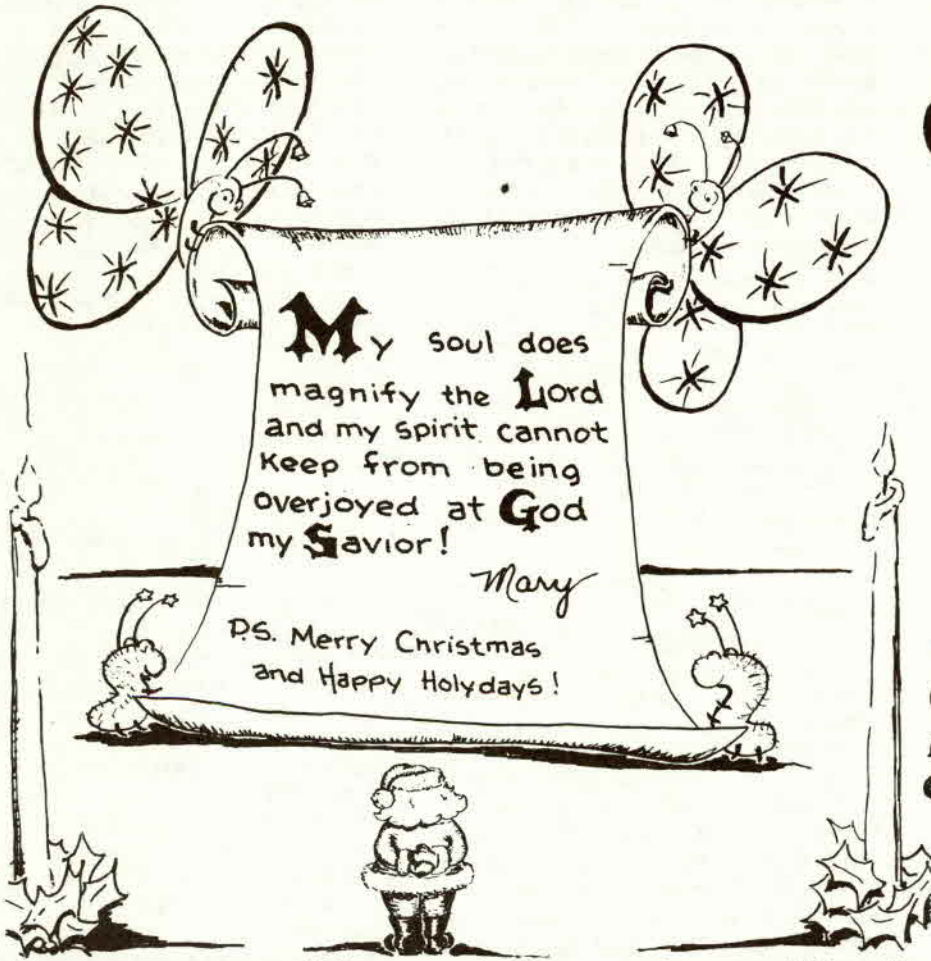 My soul does
magnify the Lord
and my spirit cannot
keep from being
overjoyed at God
my Savior!
Mary
P.S. Merry Christmas
and Happy Holydays!